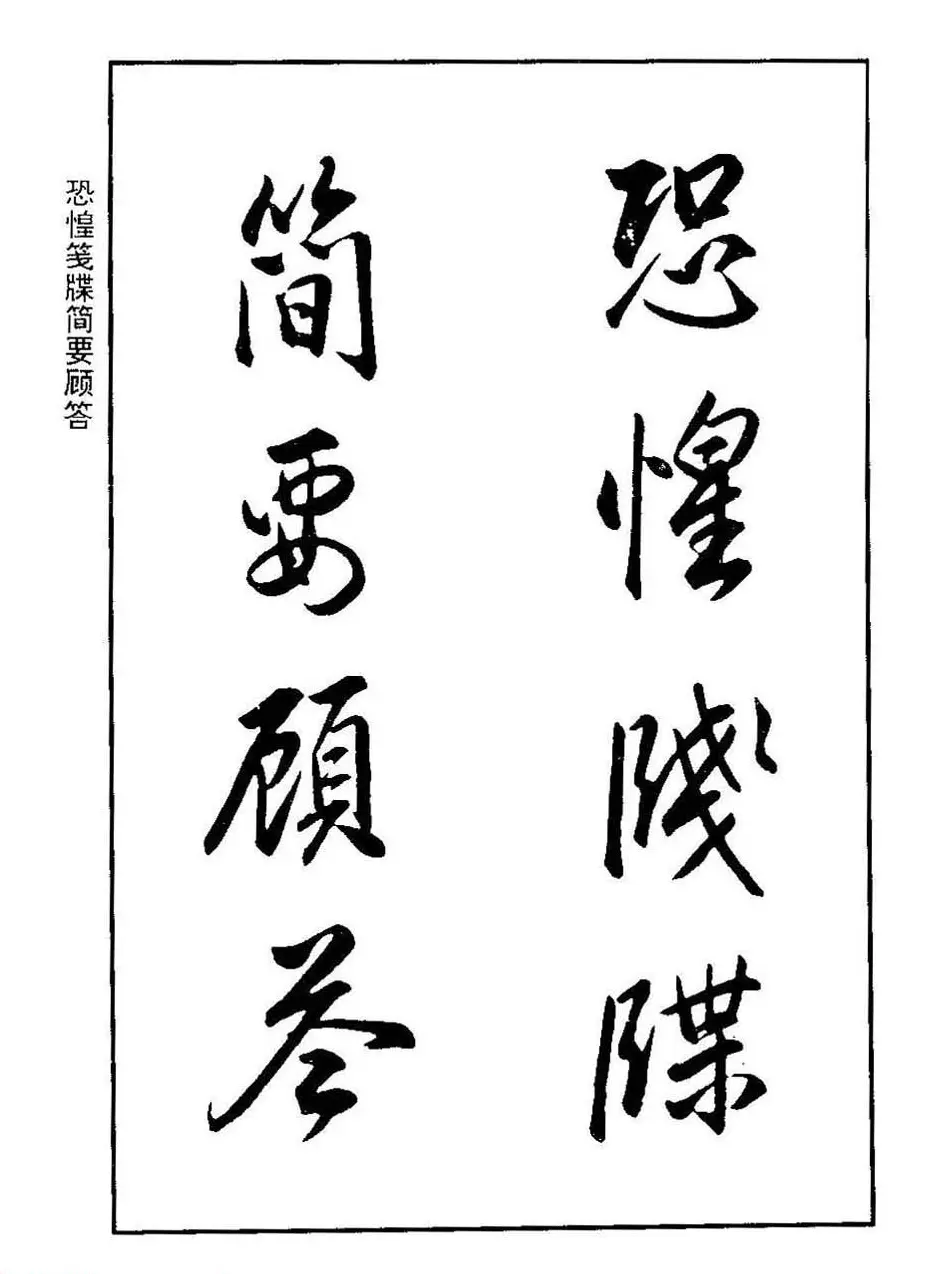 恐惶牋牒
简要顾答
恐惶笺牒简要顾答